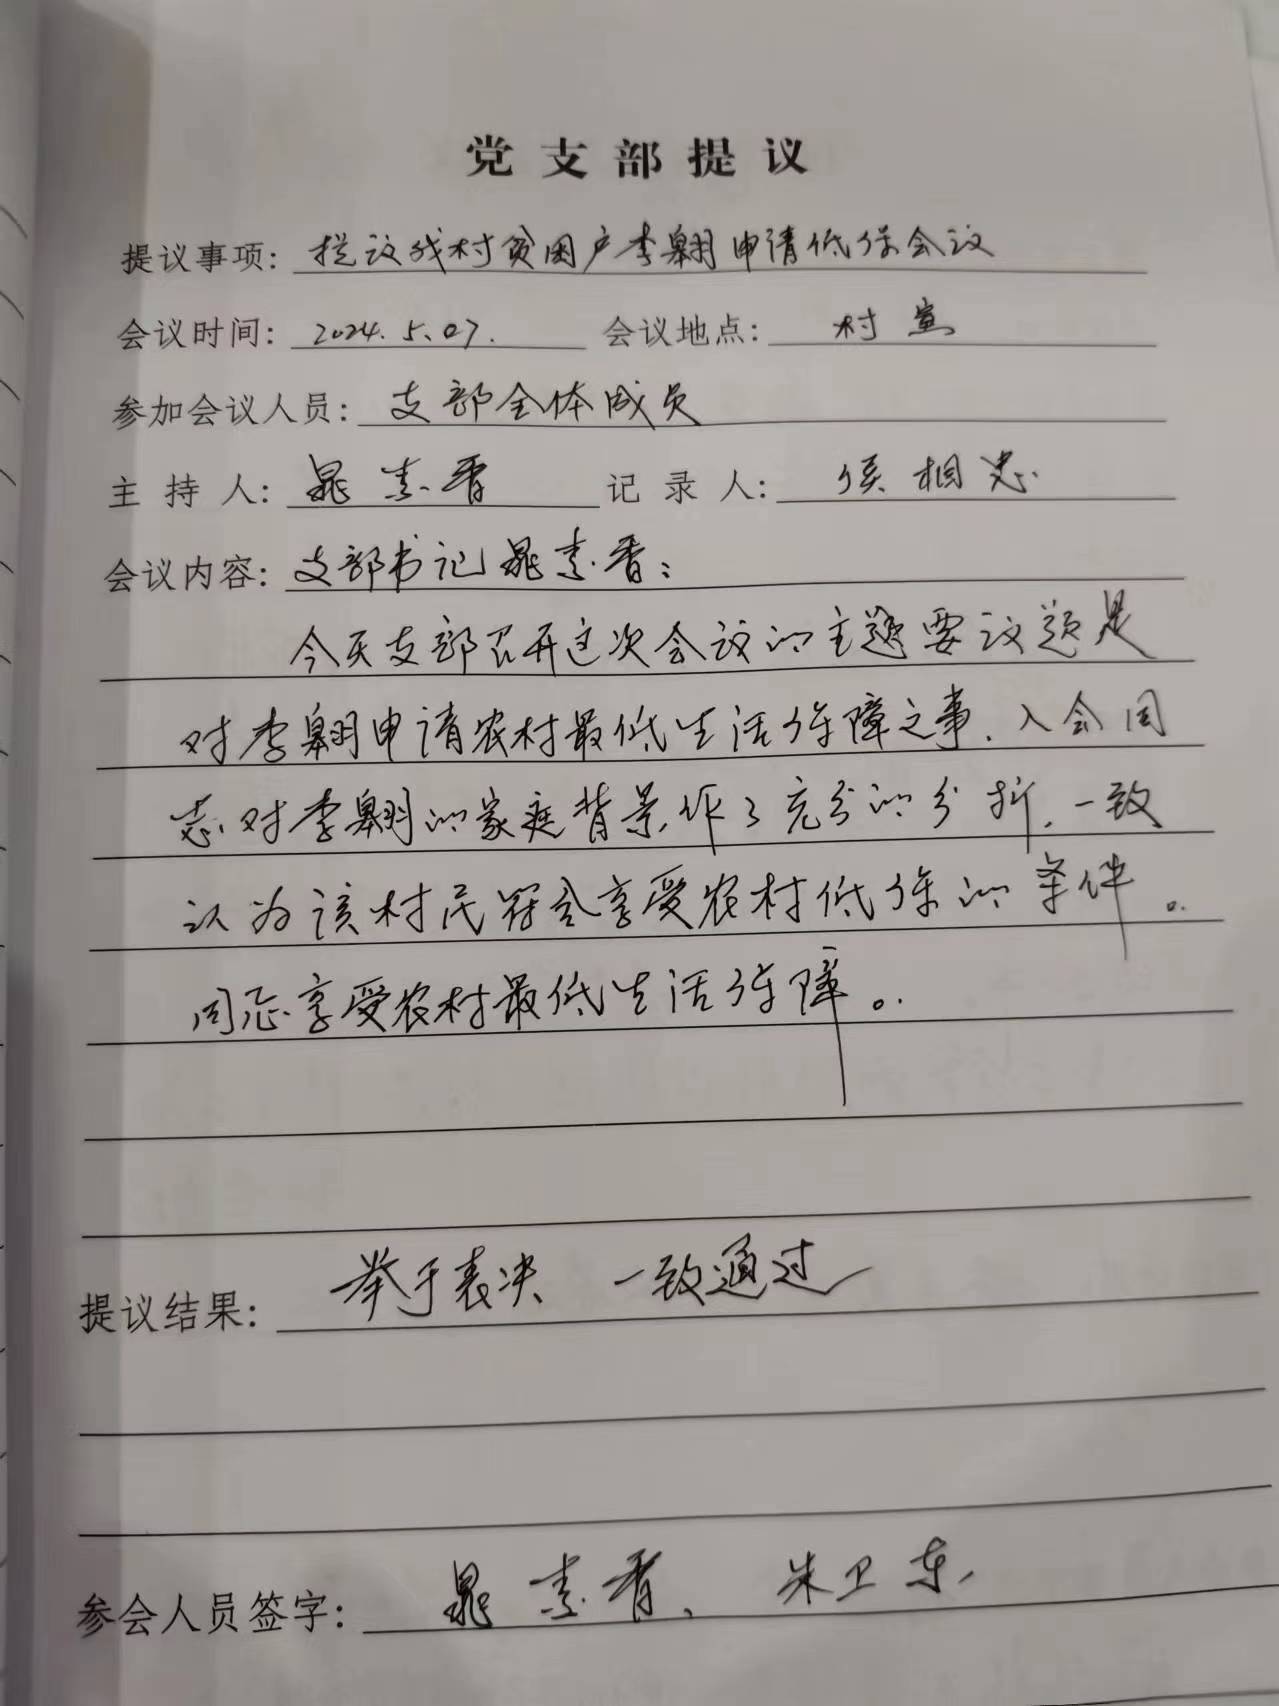 党支部提议
提议事项：提议我村贫困户李翱申请低保会议
会议时间：2024.5.07. 会议地点：村室
参加会议人员：支部全体成员
主持人：晁素香 记录人：侯相忠
会议内容：支部书记晁素香：
今天支部召开这次会议的主题要议题是
对李翱申请农村最低生活保障之事、入会同
志对李翱的家庭背景作了充分的分析，一致
认为该村民符合享受农村低保的条件。
同志享受农村最低生活保障。
提议结果：举手表决 一致通过
参会人员签字：晁素香、朱卫东